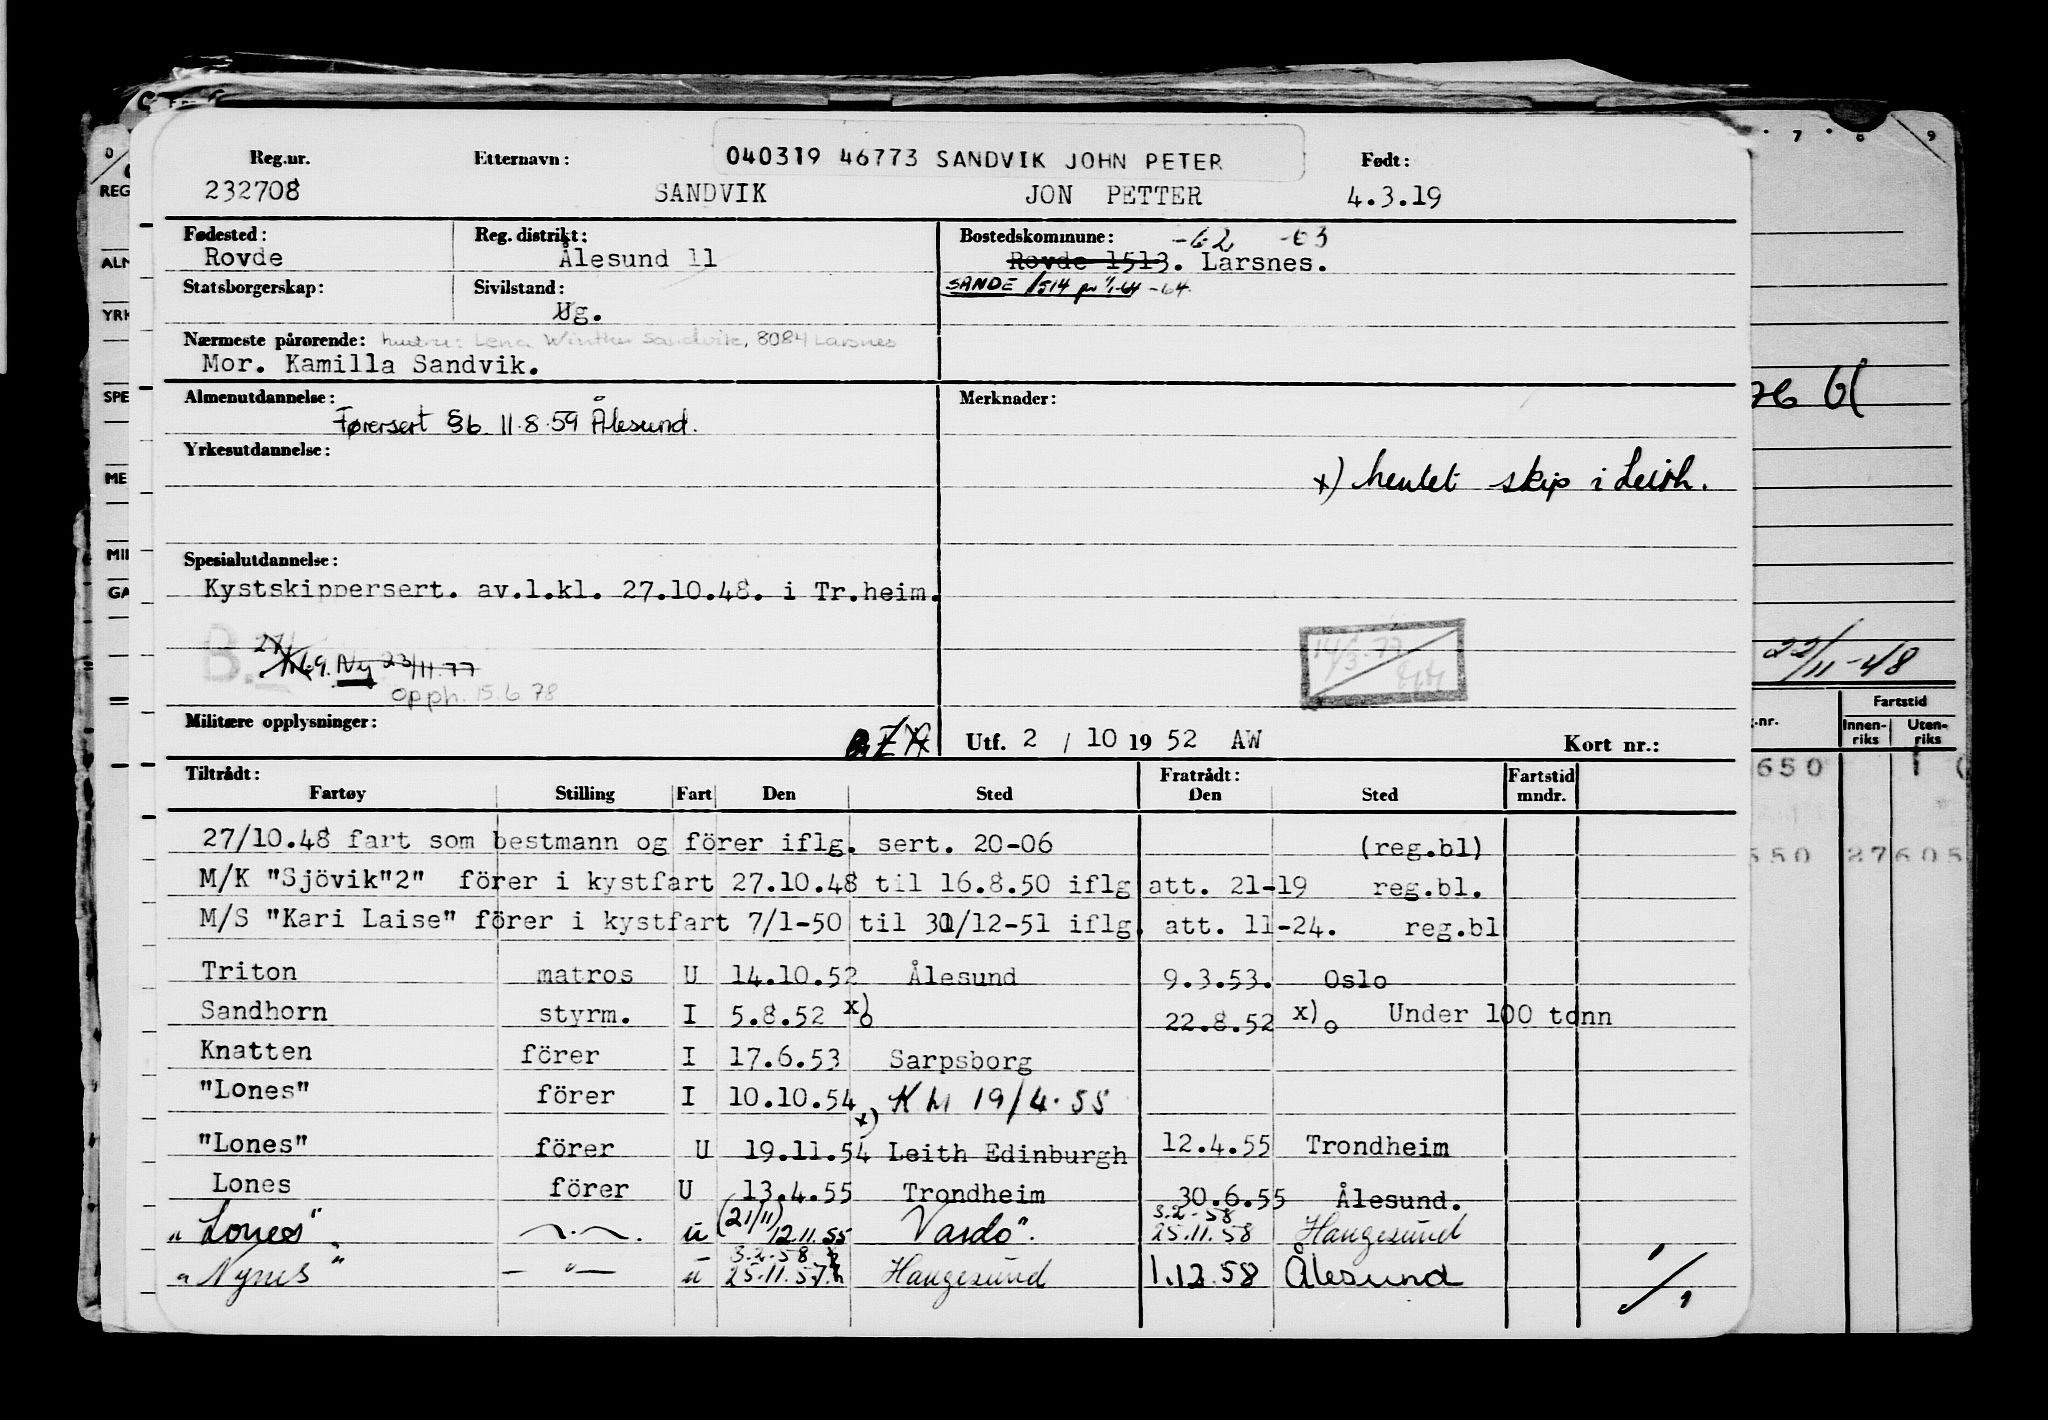 040319 46773 SANDVIK JOHN PETER
Reg.nr. Etternavn: Født:
232708 SANDVIK JON PETTER 4.3.19
Fødested: Reg. distrikt: Bostedskommune: -62 -63
Rovde Ålesund 11 Rovde 1513. Larsnes.
Statsborgerskap: Sivilstand: SANDE 1514 pr 1/1-64 -64
Ug.
Nærmeste pårørende: hustru: Lena Winther Sandvik, 8084 Larsnes
Mor. Kamilla Sandvik.
Almenutdannelse: Merknader:
Førersert §6 11.8.59 Ålesund.
Yrkesutdannelse:
x) hentet skip i Leith.
Spesialutdannelse:
Kystskippersert. av.1.kl. 27.10.48. i Tr.heim.
B. Ny 23/11.77
14/3.77
opph. 15.6.78
Militære opplysninger: Utf. 2 / 10 19 52 AW Kort nr.:
Tiltrådt: Fratrådt: Fartstid
Fartøy Stilling Fart Den Sted Den Sted mndr.
27/10.48 fart som bestmann og förer iflg. sert. 20-06 (reg.bl)
M/K "Sjövik"2" förer i kystfart 27.10.48 til 16.8.50 iflg att. 21-19 reg.bl.
M/S "Kari Laise" förer i kystfart 7/1-50 til 31/12-51 iflg. att. 11-24. reg.bl
Triton matros U 14.10.52 Ålesund 9.3.53. Oslo
Sandhorn styrm. I 5.8.52 x)o 22.8.52 x)o Under 100 tonn
Knatten förer I 17.6.53 Sarpsborg
"Lones" förer I 10.10.54 19/4.55
"Lones" förer U 19.11.54 x) Leith Edinburgh 12.4.55 Trondheim
Lones förer U 13.4.55 Trondheim 30.6.55 Ålesund.
"Lones" -"- u (21/11) 12.11.55 Vardö 3.2-58 25.11.58 Haugesund
"Nynes" - " - u 3.2.58 25.11.57 Haugesund 1.12.58 Ålesund
7 8 9
REG
ALM
YRK
SPE
ME
MIL
GA
76 61
22/11-48
Fartstid
g.nr. Innen-riks Uten-riks
650
550 27605